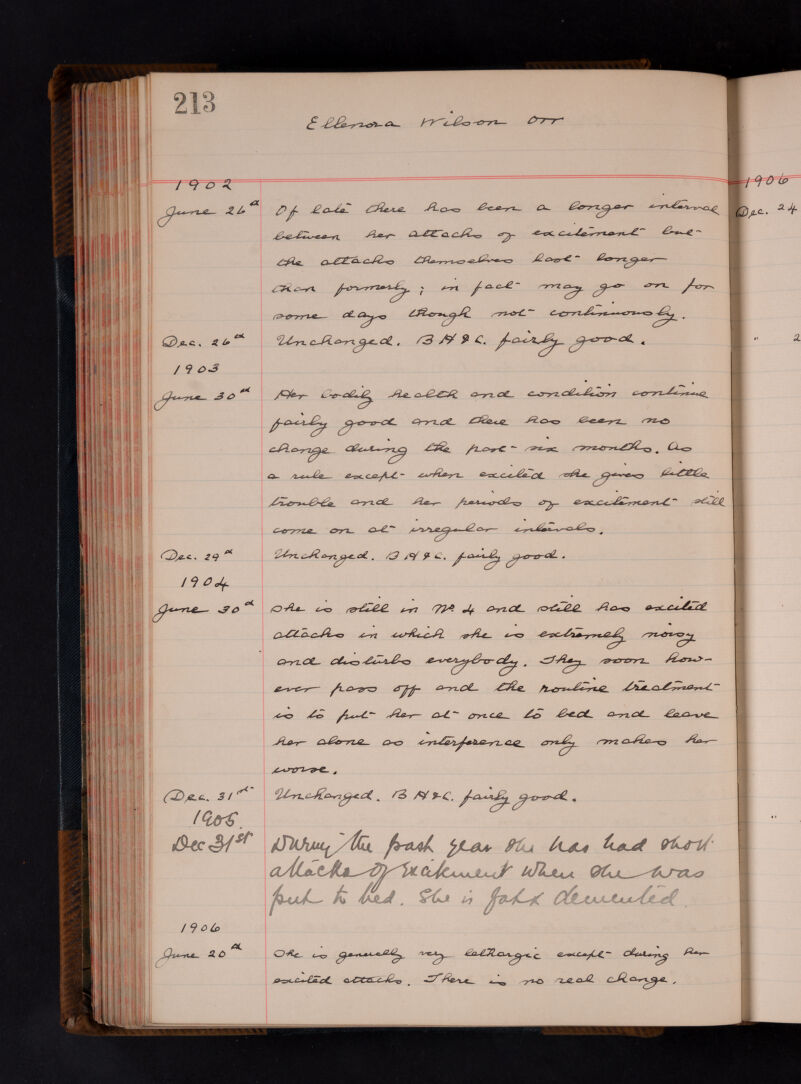 213
Ellenora Wilson Orr
1902
June 26th Of late there has been a longer interval
between her attacks of excitement but
the attacks themselves last longer
than formerly; in fact may go on for
some days though not continuously.
Dec. 26th Unchanged. B H & C. fairly good.
1903
June 30th Her bodily health and condition continue
fairly good and there has been no
change during the past six months. As
a rule except when excited she gives little
trouble and her periods of excitement still
come on at irregular intervals.
Dec. 29th Unchanged. B H & C. fairly good.
1904
June 30th She is still in No. 4 and still has excited
attacks in which she is extremely noisy
and disturbs everybody. They soon how-
ever pass off and the routine treatment
is to put her at once to bed and leave
her alone as interference only makes her
worse.
Dec. 31st Unchanged. B H & C. fairly good.
1905
Dec 31st During the past year she has had short
attacks of excitement when she was
put to bed. She is demented.
1906
June 20th She is generally very lethargic except during her
excited attacks. There is no real change.
1906
Dec. 24
" 2
"